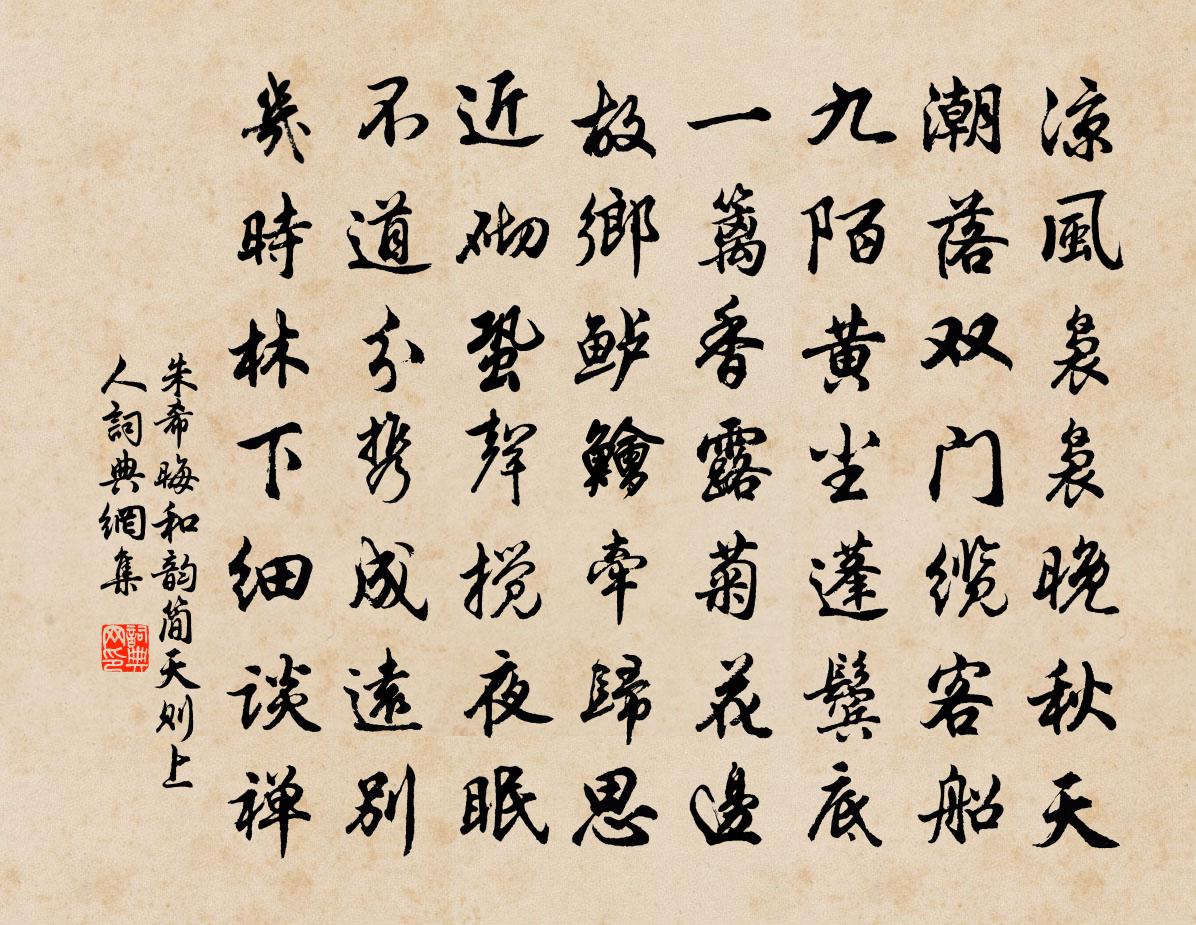 涼風袅袅晚秋天
潮落双门缆客船
九陌黄尘蓬鬓底
一篱香露菊花邊
故鄉鲈鱠牵歸思
近砌蛩聲搅夜眠
不道分携成遠别
幾時林下细谈禅
朱希晦和韵简天则上
人詞典網集
詞典
网印